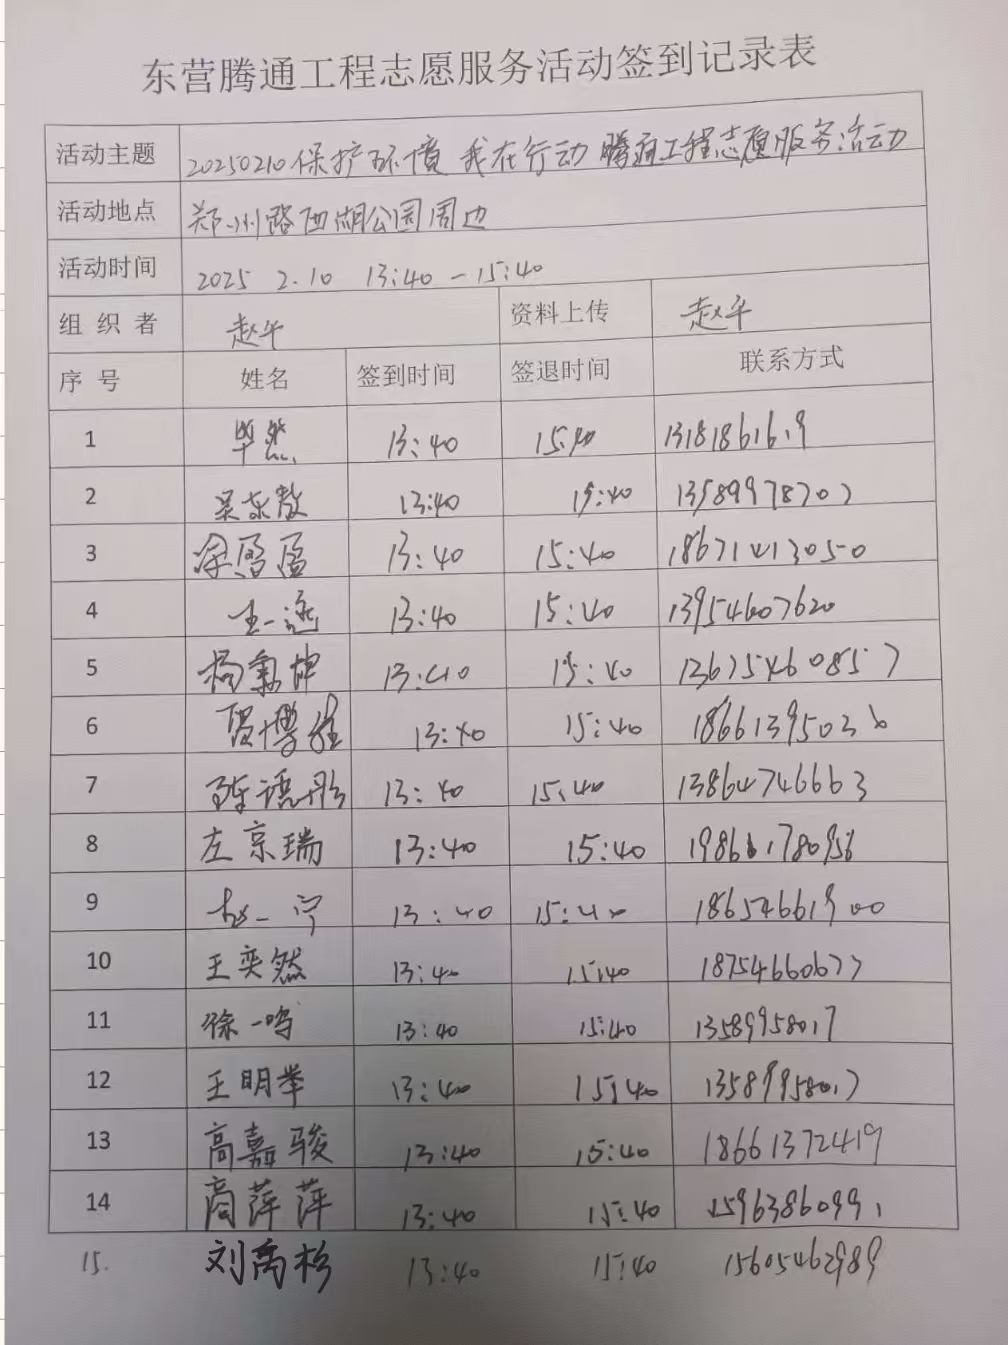 东营腾通工程志愿服务活动签到记录表
活动主题 20250210保护环境 我在行动 腾通工程志愿服务活动
活动地点 郑州路西湖公园周边
活动时间 2025 2.10 13:40-15:40
组织者 赵平 资料上传 赵平
序号 姓名 签到时间 签退时间 联系方式
1 毕然 13:40 15:40
2 吴东敖 13:40 15:40 13589978707
3 13:40 15:40 18671413050
4 王一逸 13:40 15:40 13954607620
5 13:40 15:40 13675460857
6 贾博 13:40 15:40
7 陈语彤 13:40 15:40 13864746663
8 左京瑞 13:40 15:40
9 赵一宁 13:40 15:40 18654661900
10 王奕然 13:40 15:40 18754660677
11 徐一鸣 13:40 15:40 13589958017
12 王明举 13:40 15:40 13589958017
13 高嘉骏 13:40 15:40 18661372419
14 高萍萍 13:40 15:40 15963860991
15. 刘禹杉 13:40 15:40 15605462989